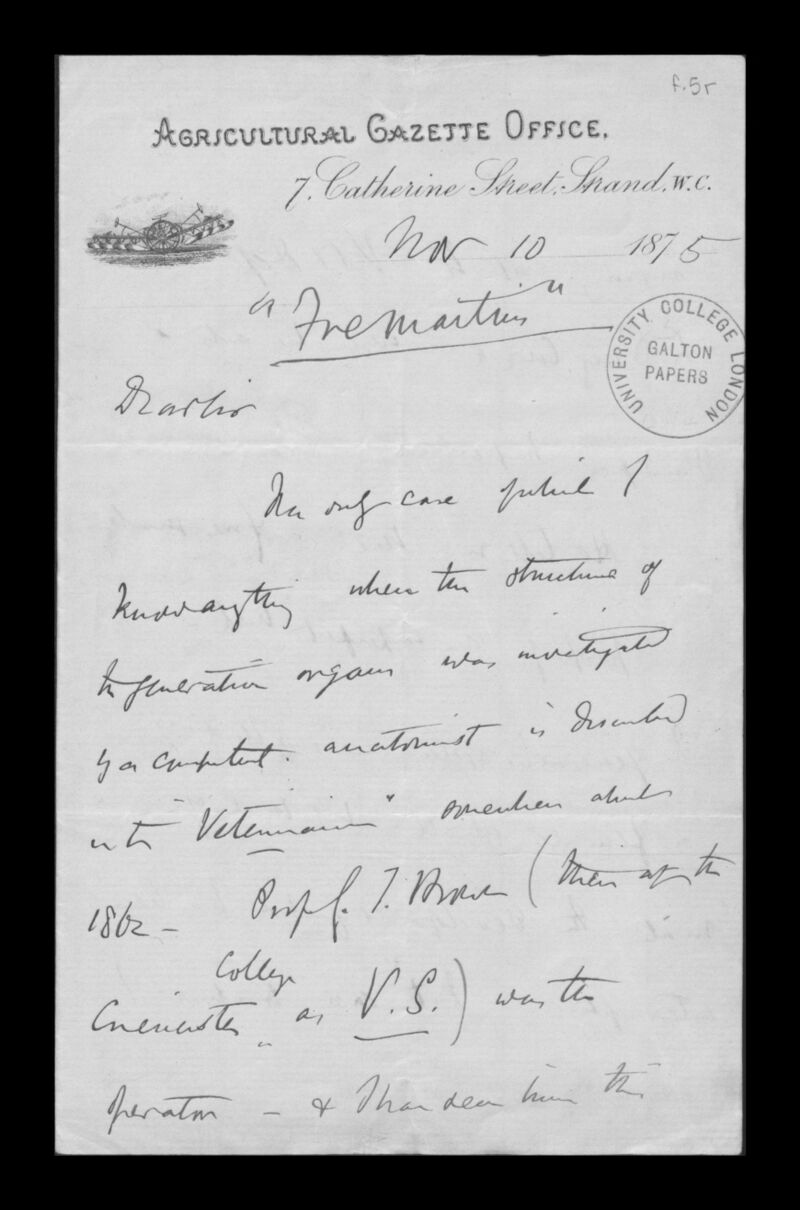 f.5r
AGRICULTURAL GAZETTE OFFICE.
7, Catherine Street, Strand, W.C.
Nov 10 1875
"Free Martins"
UNIVERSITY COLLEGE LONDON
GALTON
PAPERS
Dear Sir
The only case of which I
know anything when the structure of
the generative organs was investigated
by a competent anatomist is described
in the "Veterinarian" somewhere about
1862 – Prof. J. T. Brown (then at the
College
Cirencester as V.S.) was the
operator – & I have seen him this